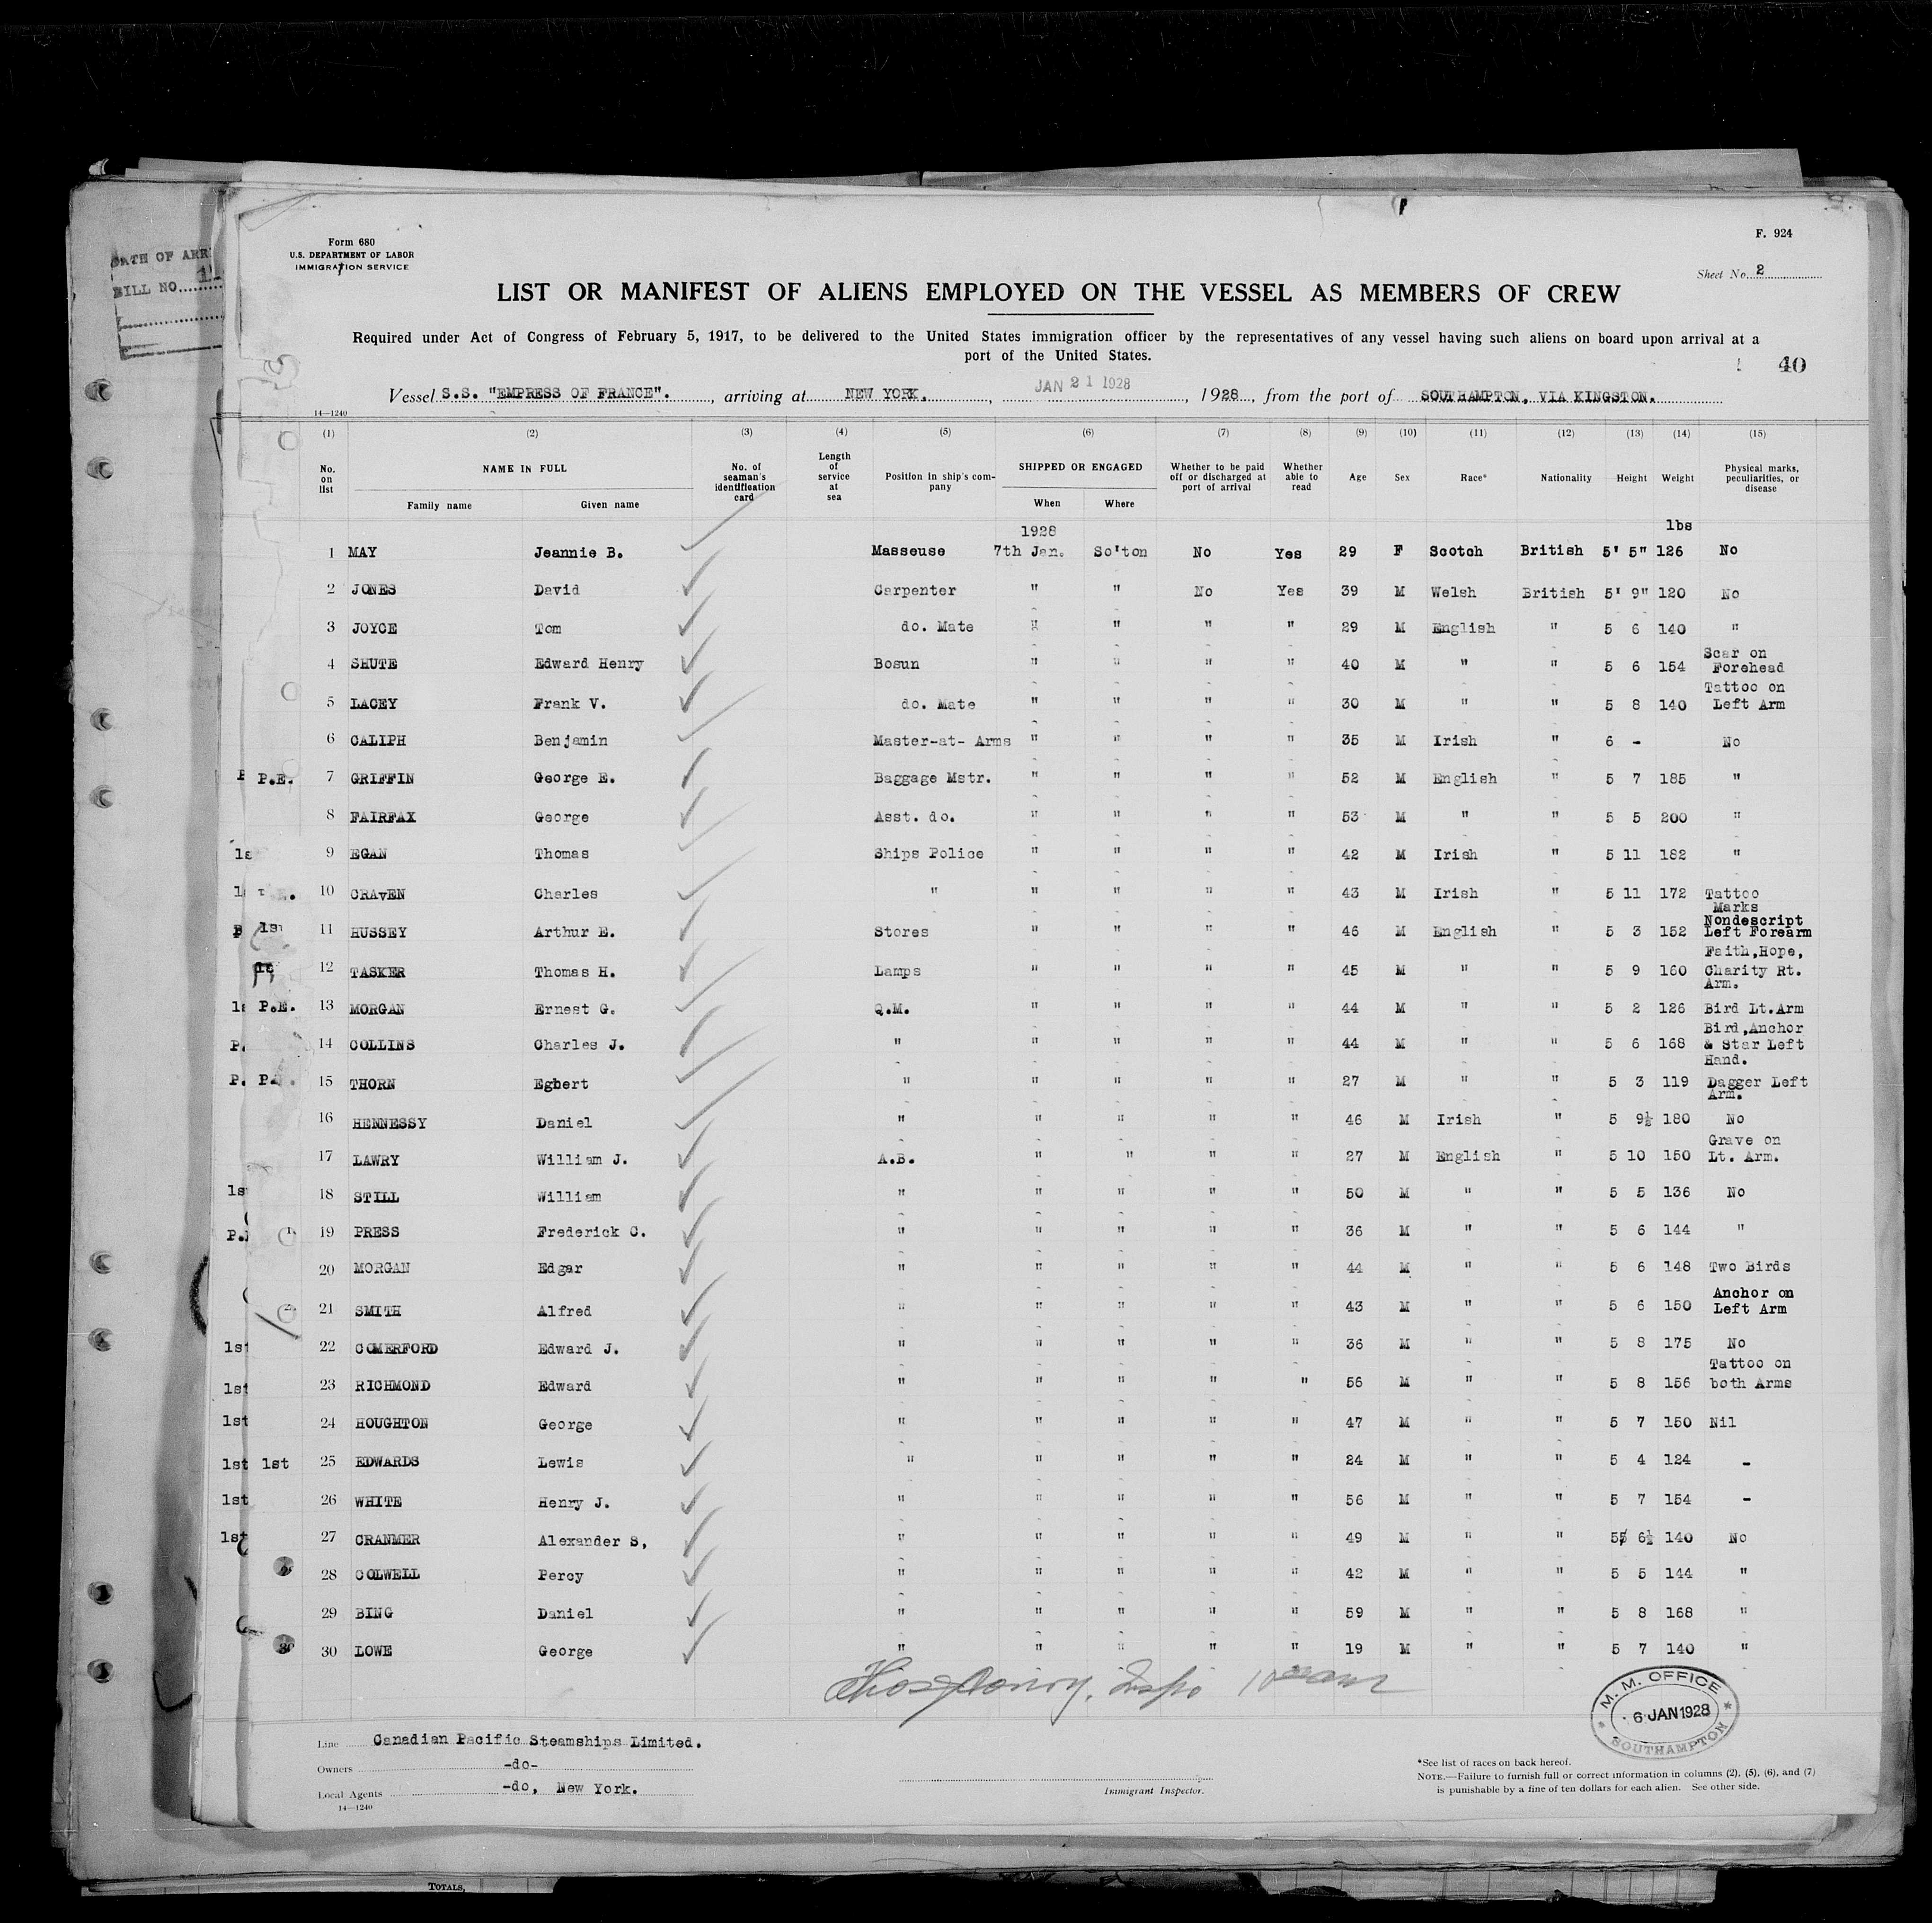 DATE OF ARR
BILL NO. 1
Form 680
U.S. DEPARTMENT OF LABOR
IMMIGRATION SERVICE
F. 924
Sheet No. 2
LIST OR MANIFEST OF ALIENS EMPLOYED ON THE VESSEL AS MEMBERS OF CREW
Required under Act of Congress of February 5, 1917, to be delivered to the United States immigration officer by the representatives of any vessel having such aliens on board upon arrival at a
port of the United States.
40
Vessel S.S. "EMPRESS OF FRANCE"., arriving at NEW YORK., JAN 21 1928, 1928, from the port of SOUTHAMPTON, VIA KINGSTON.
14—1240
(1) (2) (3) (4) (5) (6) (7) (8) (9) (10) (11) (12) (13) (14) (15)
No. on list NAME IN FULL Family name Given name No. of seaman's identification card Length of service at sea Position in ship's company SHIPPED OR ENGAGED When Where Whether to be paid off or discharged at port of arrival Whether able to read Age Sex Race* Nationality Height Weight Physical marks, peculiarities, or disease
1928 lbs
1 MAY Jeannie B. Masseuse 7th Jan. So'ton No Yes 29 F Scotch British 5' 5" 126 No
2 JONES David Carpenter " " No Yes 39 M Welsh British 5' 9" 120 No
3 JOYCE Tom do. Mate " " " " 29 M English " 5 6 140 "
4 SHUTE Edward Henry Bosun " " " " 40 M " " 5 6 154 Scar on Forehead
5 LACEY Frank V. do. Mate " " " " 30 M " " 5 8 140 Tattoo on Left Arm
6 CALIPH Benjamin Master-at- Arms " " " " 35 M Irish " 6 - No
P.E. 7 GRIFFIN George E. Baggage Mstr. " " " " 52 M English " 5 7 185 "
8 FAIRFAX George Asst. do. " " " " 53 M " " 5 5 200 "
9 EGAN Thomas Ships Police " " " " 42 M Irish " 5 11 182 "
10 CRAvEN Charles " " " " " 43 M Irish " 5 11 172 Tattoo Marks
11 HUSSEY Arthur E. Stores " " " " 46 M English " 5 3 152 Nondescript Left Forearm
12 TASKER Thomas H. Lamps " " " " 45 M " " 5 9 160 Faith,Hope, Charity Rt. Arm.
P.E. 13 MORGAN Ernest G. Q.M. " " " " 44 M " " 5 2 126 Bird Lt.Arm
14 COLLINS Charles J. " " " " " 44 M " " 5 6 168 Bird,Anchor & Star Left Hand.
15 THORN Egbert " " " " " 27 M " " 5 3 119 Dagger Left Arm.
16 HENNESSY Daniel " " " " " 46 M Irish " 5 9½ 180 No
17 LAWRY William J. A.B. " " " " 27 M English " 5 10 150 Grave on Lt. Arm.
18 STILL William " " " " " 50 M " " 5 5 136 No
19 PRESS Frederick C. " " " " " 36 M " " 5 6 144 "
20 MORGAN Edgar " " " " " 44 M " " 5 6 148 Two Birds
21 SMITH Alfred " " " " " 43 M " " 5 6 150 Anchor on Left Arm
1st 22 COMERFORD Edward J. " " " " " 36 M " " 5 8 175 No
1st 23 RICHMOND Edward " " " " " 56 M " " 5 8 156 Tattoo on both Arms
1st 24 HOUGHTON George " " " " " 47 M " " 5 7 150 Nil
1st 1st 25 EDWARDS Lewis " " " " " 24 M " " 5 4 124 -
1st 26 WHITE Henry J. " " " " " 56 M " " 5 7 154 -
1st 27 CRANMER Alexander S, " " " " " 49 M " " 5 6½ 140 No
28 COLWELL Percy " " " " " 42 M " " 5 5 144 "
29 BING Daniel " " " " " 59 M " " 5 8 168 "
30 LOWE George " " " " " 19 M " " 5 7 140 "
M. M. OFFICE
6 JAN 1928
SOUTHAMPTON
Line Canadian Pacific Steamships Limited.
Owners -do-
Local Agents -do, New York.
14—1240
Immigrant Inspector.
*See list of races on back hereof.
NOTE.—Failure to furnish full or correct information in columns (2), (5), (6), and (7)
is punishable by a fine of ten dollars for each alien. See other side.
TOTALS,